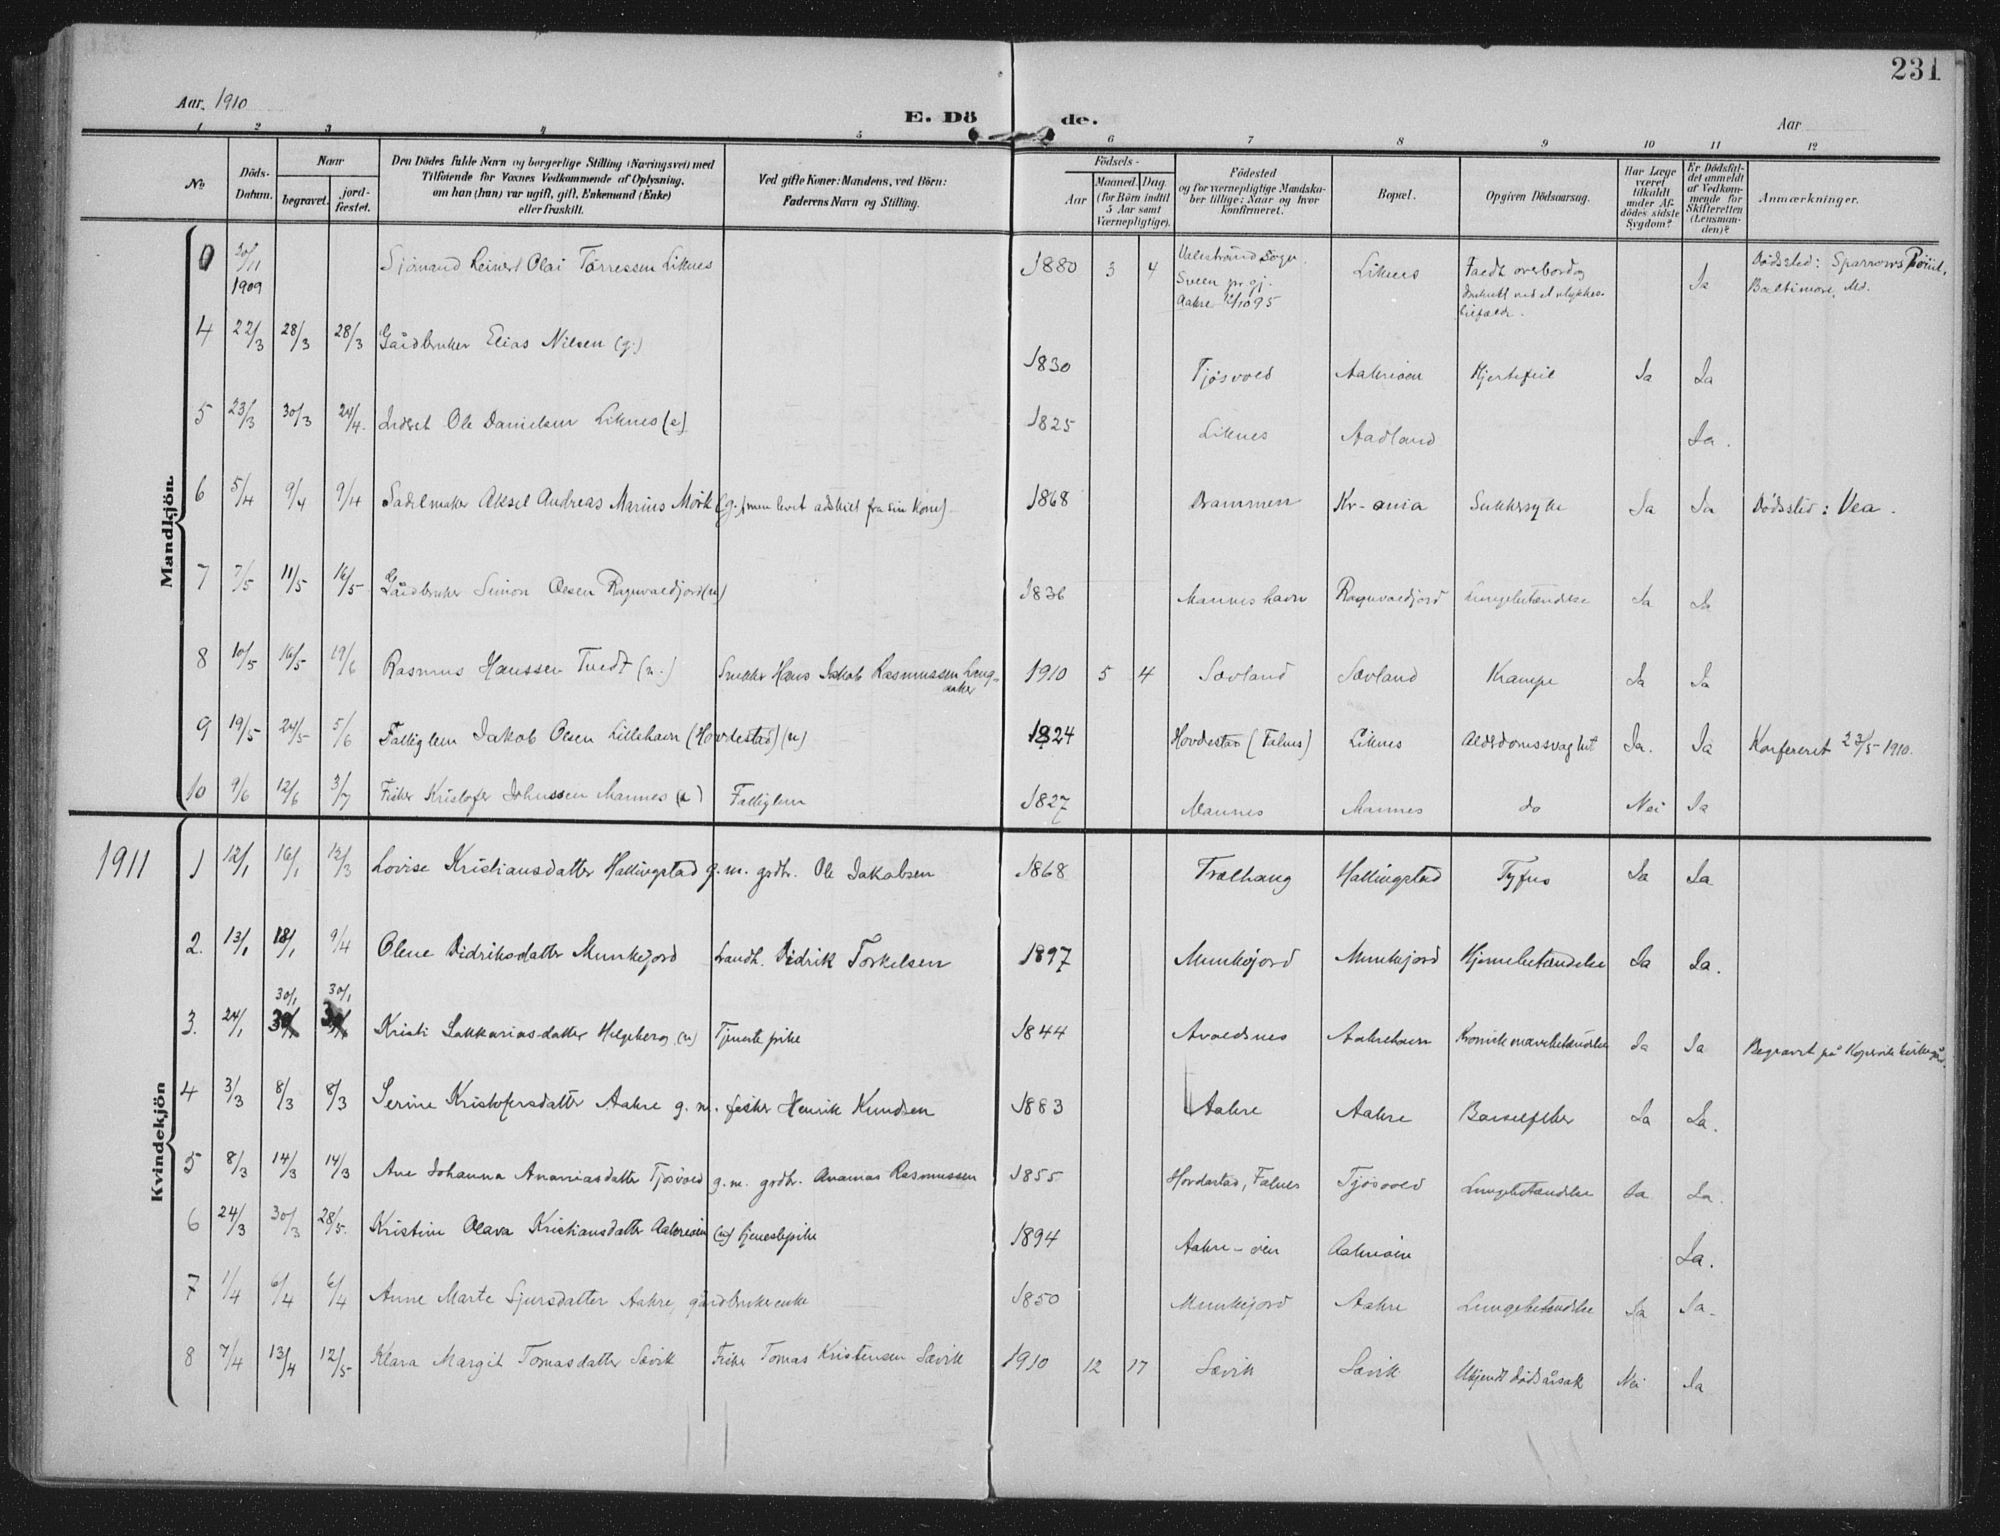 231
Aar. 1910
E. Döde.
Aar
1 2 3 4 5 6 7 8 9 10 11 12
No. Döds-Datum. Naar begravet. jord-fæstet. Den Dödes fulde Navn og borgerlige Stilling (Næringsvei) med Tilföiende for Voxnes Vedkommende af Oplysning, om han (hun) var ugift, gift, Enkemand (Enke) eller fraskilt. Ved gifte Koner: Mandens, ved Börn: Faderens Navn og Stilling. Födsels- Aar Maaned. Dag. (for Börn indtil 5 Aar samt Værnepligtige). Födested og for værnepligtige Mandskaber tillige: Naar og hvor konfirmeret. Bopæl. Opgiven Dödsaarsag. Har Læge været tilkaldt under Afdödes sidste Sygdom? Er Dödsfaldet anmeldt af Vedkommende for Skifteretten (Lensmanden)? Anmærkninger.
Mandkjön.
0 20/11 1909 Sjömand Leinert Olai Tørressen Liknes 1880 3 4 Sveen pr.gj. Aakre 95 Liknes Faldt overbord og druknet ved et ulykkestilfælde. Ja Dødssted: Sparrows Point, Baltimore, Md.
4 22/3 28/3 28/3 Gårdbruker Elias Nilsen (g.) 1830 Tjøsvold Aakreøen Hjertefeil Ja Ja
5 23/3 30/3 24/4. Inderst Ole Danielsen Liknes (e) 1825 Liknes Aadland Ja.
6 5/4 9/4 9/4 Sadelmaker Aksel Andreas Marius Mørk (g., men levet adskilt fra sin Kone) 1868 Drammen Kr-ania Sukkersyke Ja Ja Dødssted: Vea.
7 7/5 11/5 16/5 Gårdbruker Simon Olsen Ragnvaldjord (u) 1836 Manneshavn Ragnvaldjord Lungebetændelse Ja Ja
8 10/5 16/5 19/6 Rasmus Hanssen Tvedt (u.) Snekker Hans Jakob Rasmussen Langaaker 1910 5 4 Sævland Sævland Krampe Ja Ja
9 19/5 24/5 5/6 Fattiglem Jakob Olsen Lillehavn (Hovdestad) (u) 1824 Hovdestad (Falnes) Liknes Alderdomssvaghet Ja. Ja Konfereret 23/5 1910.
10 9/6 12/6 3/7 Fisker Kristofer Johnssen Mannes (e) Fattiglem 1827 Mannes Mannes do Nei Ja
1911
Kvindekjön
1 12/1 16/1 12/3 Lovise Kristiansdatter Hallingstad g.m. grdbr. Ole Jakobsen 1868 Trælhaug Hallingstad Tyfus Ja Ja
2. 13/1 18/1 9/4 Olene Didriksdatter Munkejord Landh. Didrik Torkelsen 1897 Munkejord Munkejord Hjernebetændelse Ja Ja.
30/1 30/1
3. 24/1 Kristi Sakkariasdatter Helgeberg (u) Tjenestepike 1844 Avaldsnes Aakrehavn Kronisk mavebetændelse Ja Ja Begravet på Kopervik kirkegård.
4 3/3 8/3 8/3 Serine Kristofersdatter Aakre g. m. fisker Henrik Knudsen 1883 Aakre Aakre Barselfeber Ja Ja.
5 8/3 14/3 14/3 Ane Johanna Ananiasdatter Tjøsvold g.m. grdbr. Ananias Rasmussen 1855 Hovdestad, Falnes Tjøsvold Lungebetændelse Ja Ja.
6 24/3 30/3 28/5. Kristine Olava Kristiansdatter Aakreøen (u) tjenestepike 1894 Aakre-øen Aakreøen Ja.
7 1/4 6/4 6/4 Anne Marte Sjursdatter Aakre, gårdbrukerenke 1850 Munkejord Aakre Lungebetændelse Ja Ja.
8 7/4 13/4 12/5 Klara Margit Tomasdatter Sævik Fisker Tomas Kristensen Sævik 1910 12 17 Sævik Sævik Ukjendt dødsårsak Nei Ja